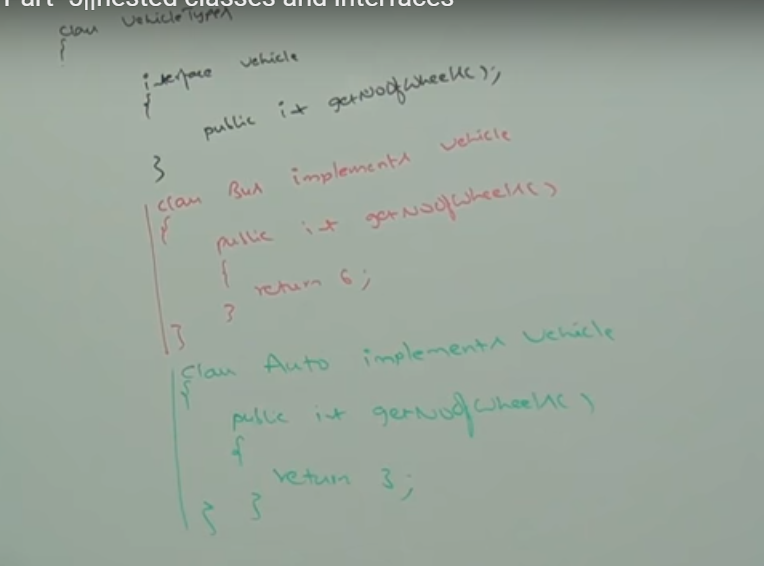 Part- 5||nested classes and interfaces
class VehicleTypes
{
interface Vehicle
{
public int getNoOfWheels();
}
class Bus implements Vehicle
{
public int getNoOfWheels()
{
return 6;
}
}
class Auto implements Vehicle
{
public int getNoOfWheels()
{
return 3;
} }